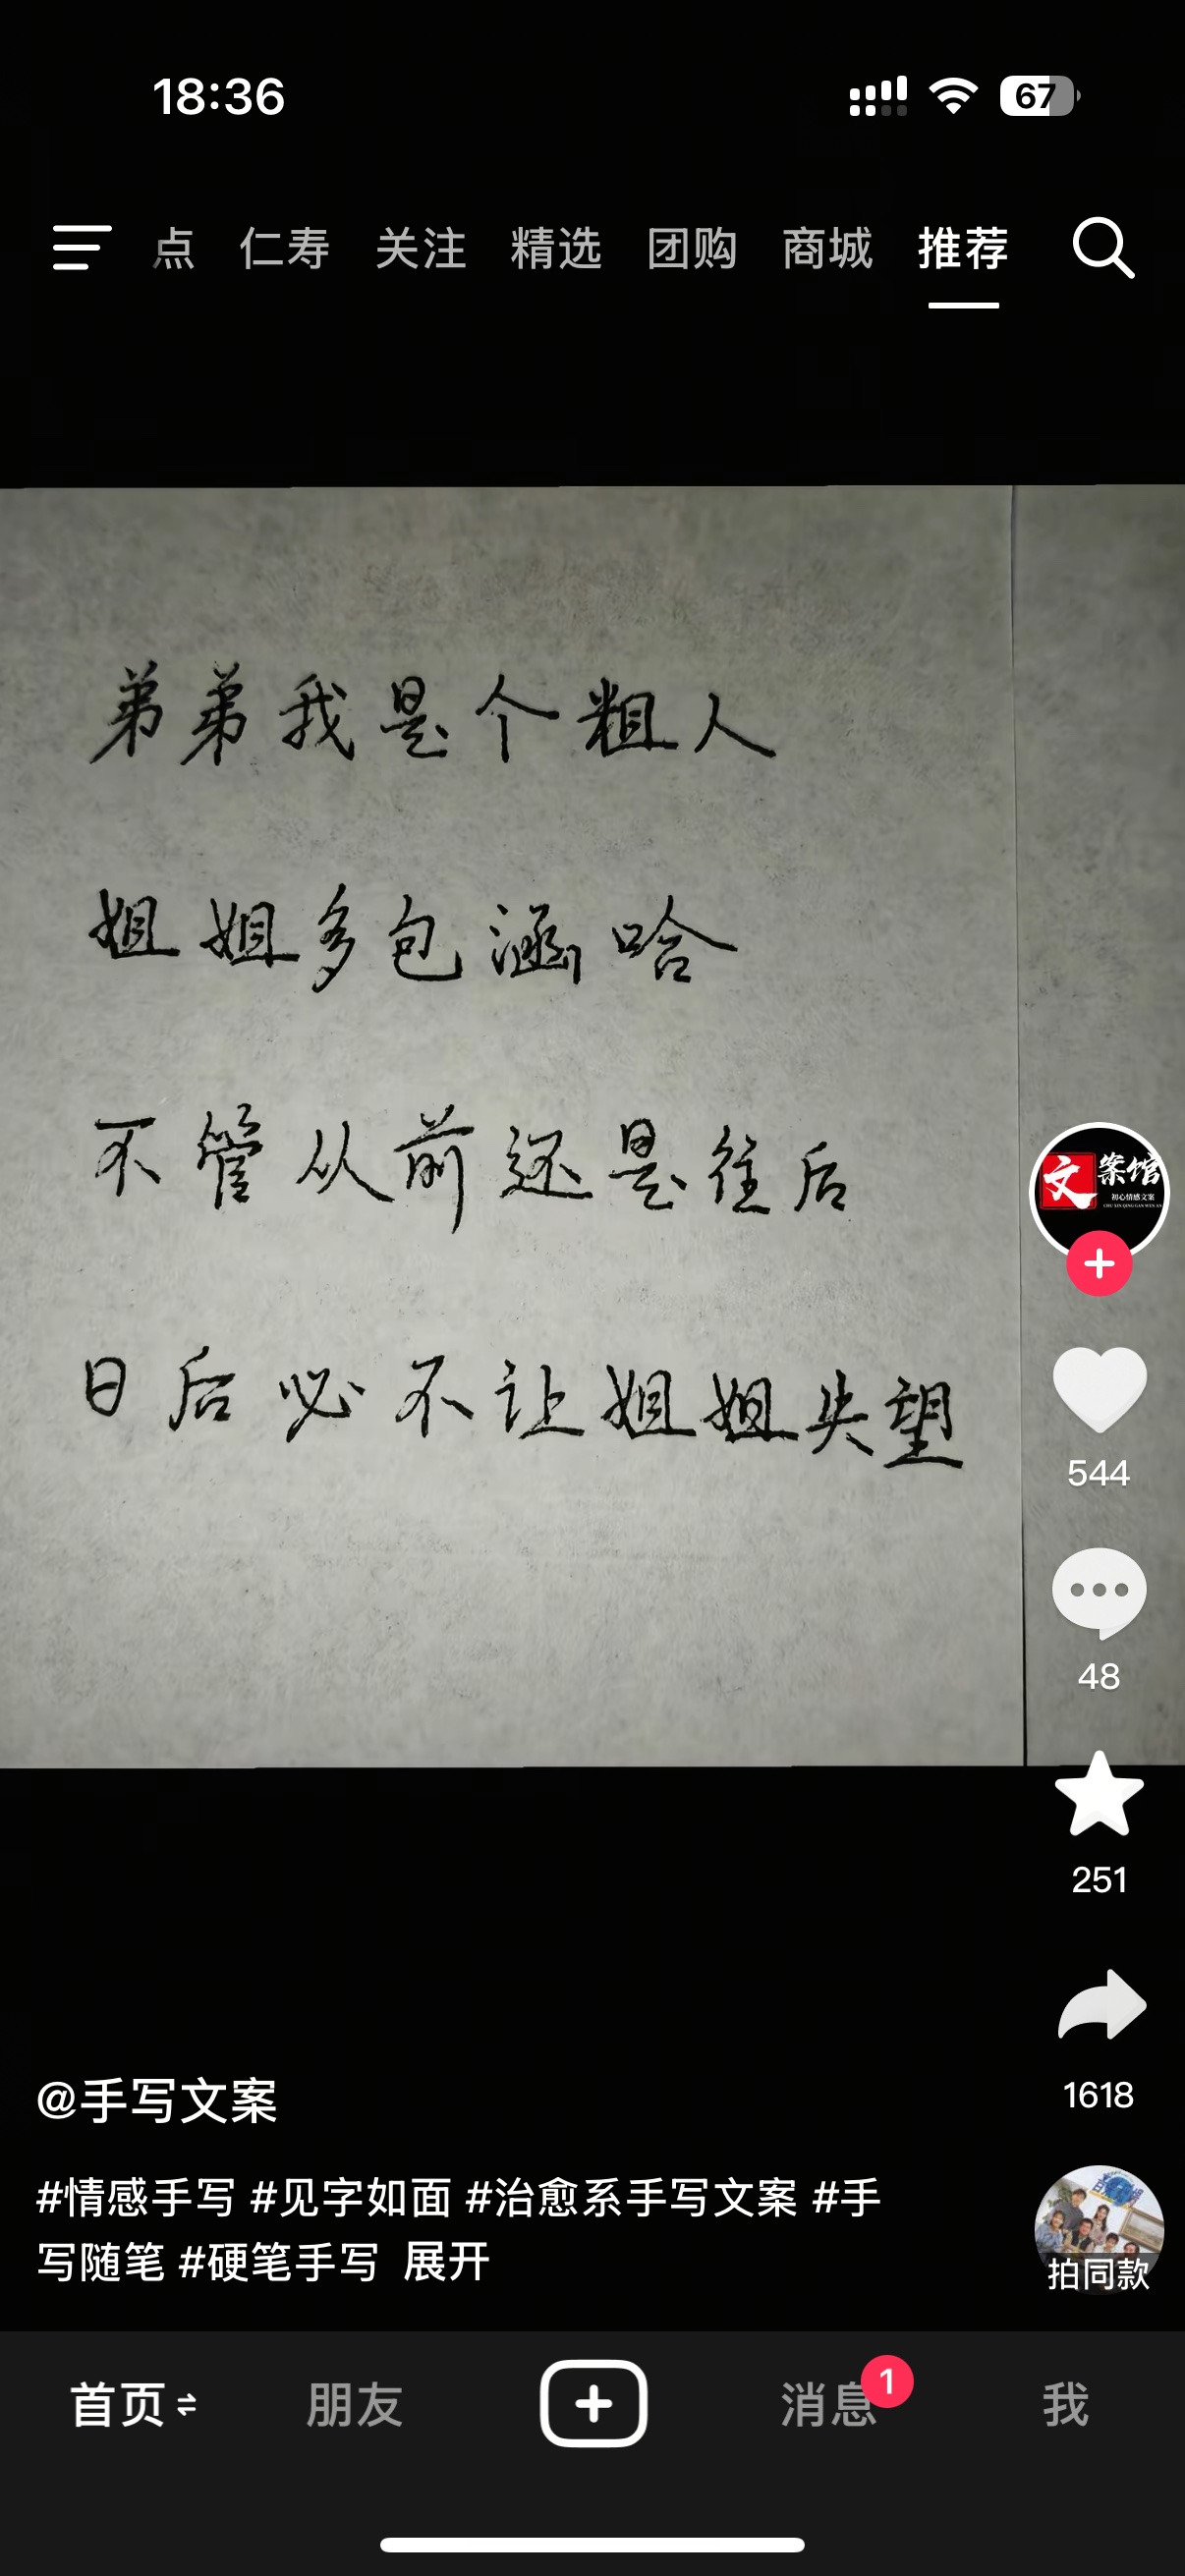 18:36
67
点 仁寿 关注 精选 团购 商城 推荐
弟弟我是个粗人
姐姐多包涵哈
不管从前还是往后
日后必不让姐姐失望
文案馆
初心情感文案
544
48
251
1618
@手写文案
#情感手写 #见字如面 #治愈系手写文案 #手
写随笔 #硬笔手写 展开
拍同款
首页 朋友 消息 1 我